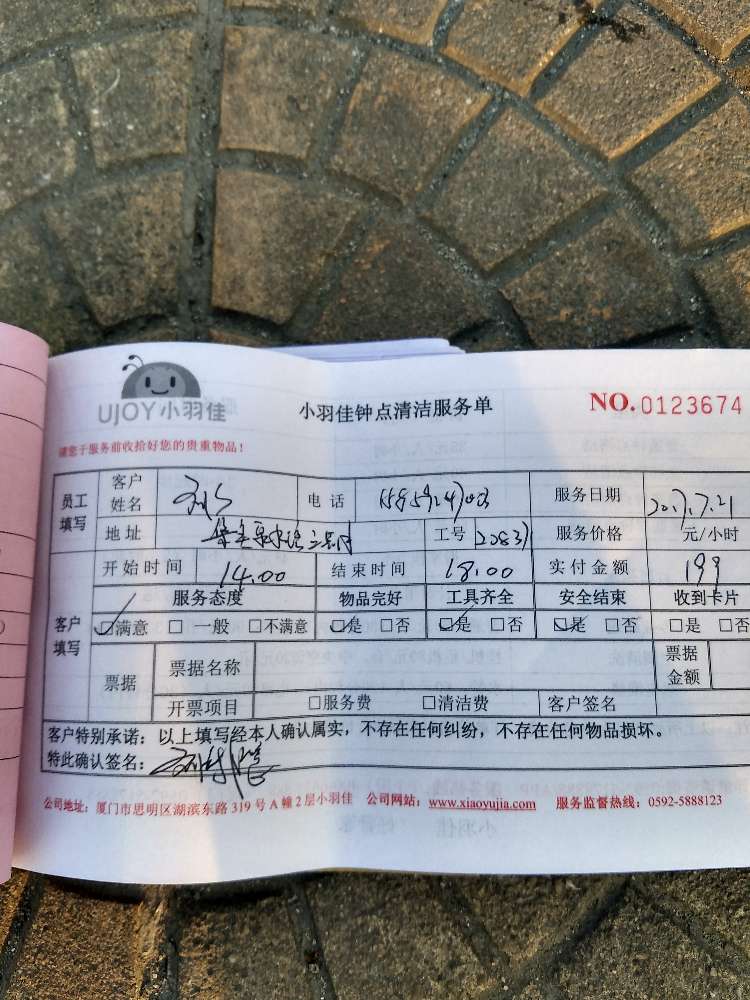 UJOY小羽佳
小羽佳钟点清洁服务单
NO.0123674
请您于服务前收拾好您的贵重物品！
员工填写 客户姓名 电话 服务日期 2017.7.21
地址 工号 服务价格 元/小时
开始时间 14.00 结束时间 18.00 实付金额 199
客户填写 服务态度 物品完好 工具齐全 安全结束 收到卡片
☑满意 □一般 □不满意 ☑是 □否 ☑是 □否 ☑是 □否 □是 □否
票据 票据名称 票据金额
开票项目 □服务费 □清洁费 客户签名
客户特别承诺：以上填写经本人确认属实，不存在任何纠纷，不存在任何物品损坏。
特此确认签名：
公司地址：厦门市思明区湖滨东路319号A幢2层小羽佳 公司网站：www.xiaoyujia.com 服务监督热线：0592-5888123